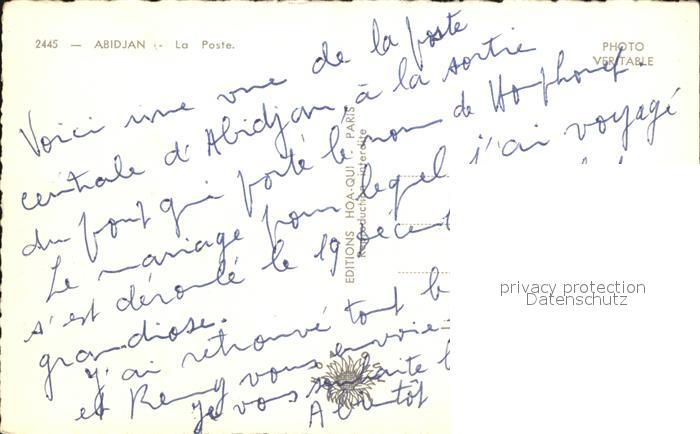 2445 — ABIDJAN - La Poste.
PHOTO
VERITABLE
EDITIONS HOA-QUI - PARIS
Reproduction interdite
Voici une vue de la poste
centrale d'Abidjan à la sortie
du pont qui porte le nom de Houphouet.
Le mariage pour lequel j'ai voyagé
s'est déroulé le 19
grandiose.
J'ai retrouvé tout
et Remy vous envoie
Je vous souhaite
A bientôt
privacy protection
Datenschutz